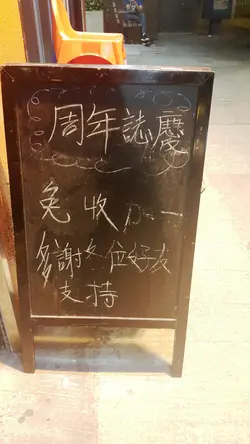 周年誌慶
免收加一
多謝各位好友
支持